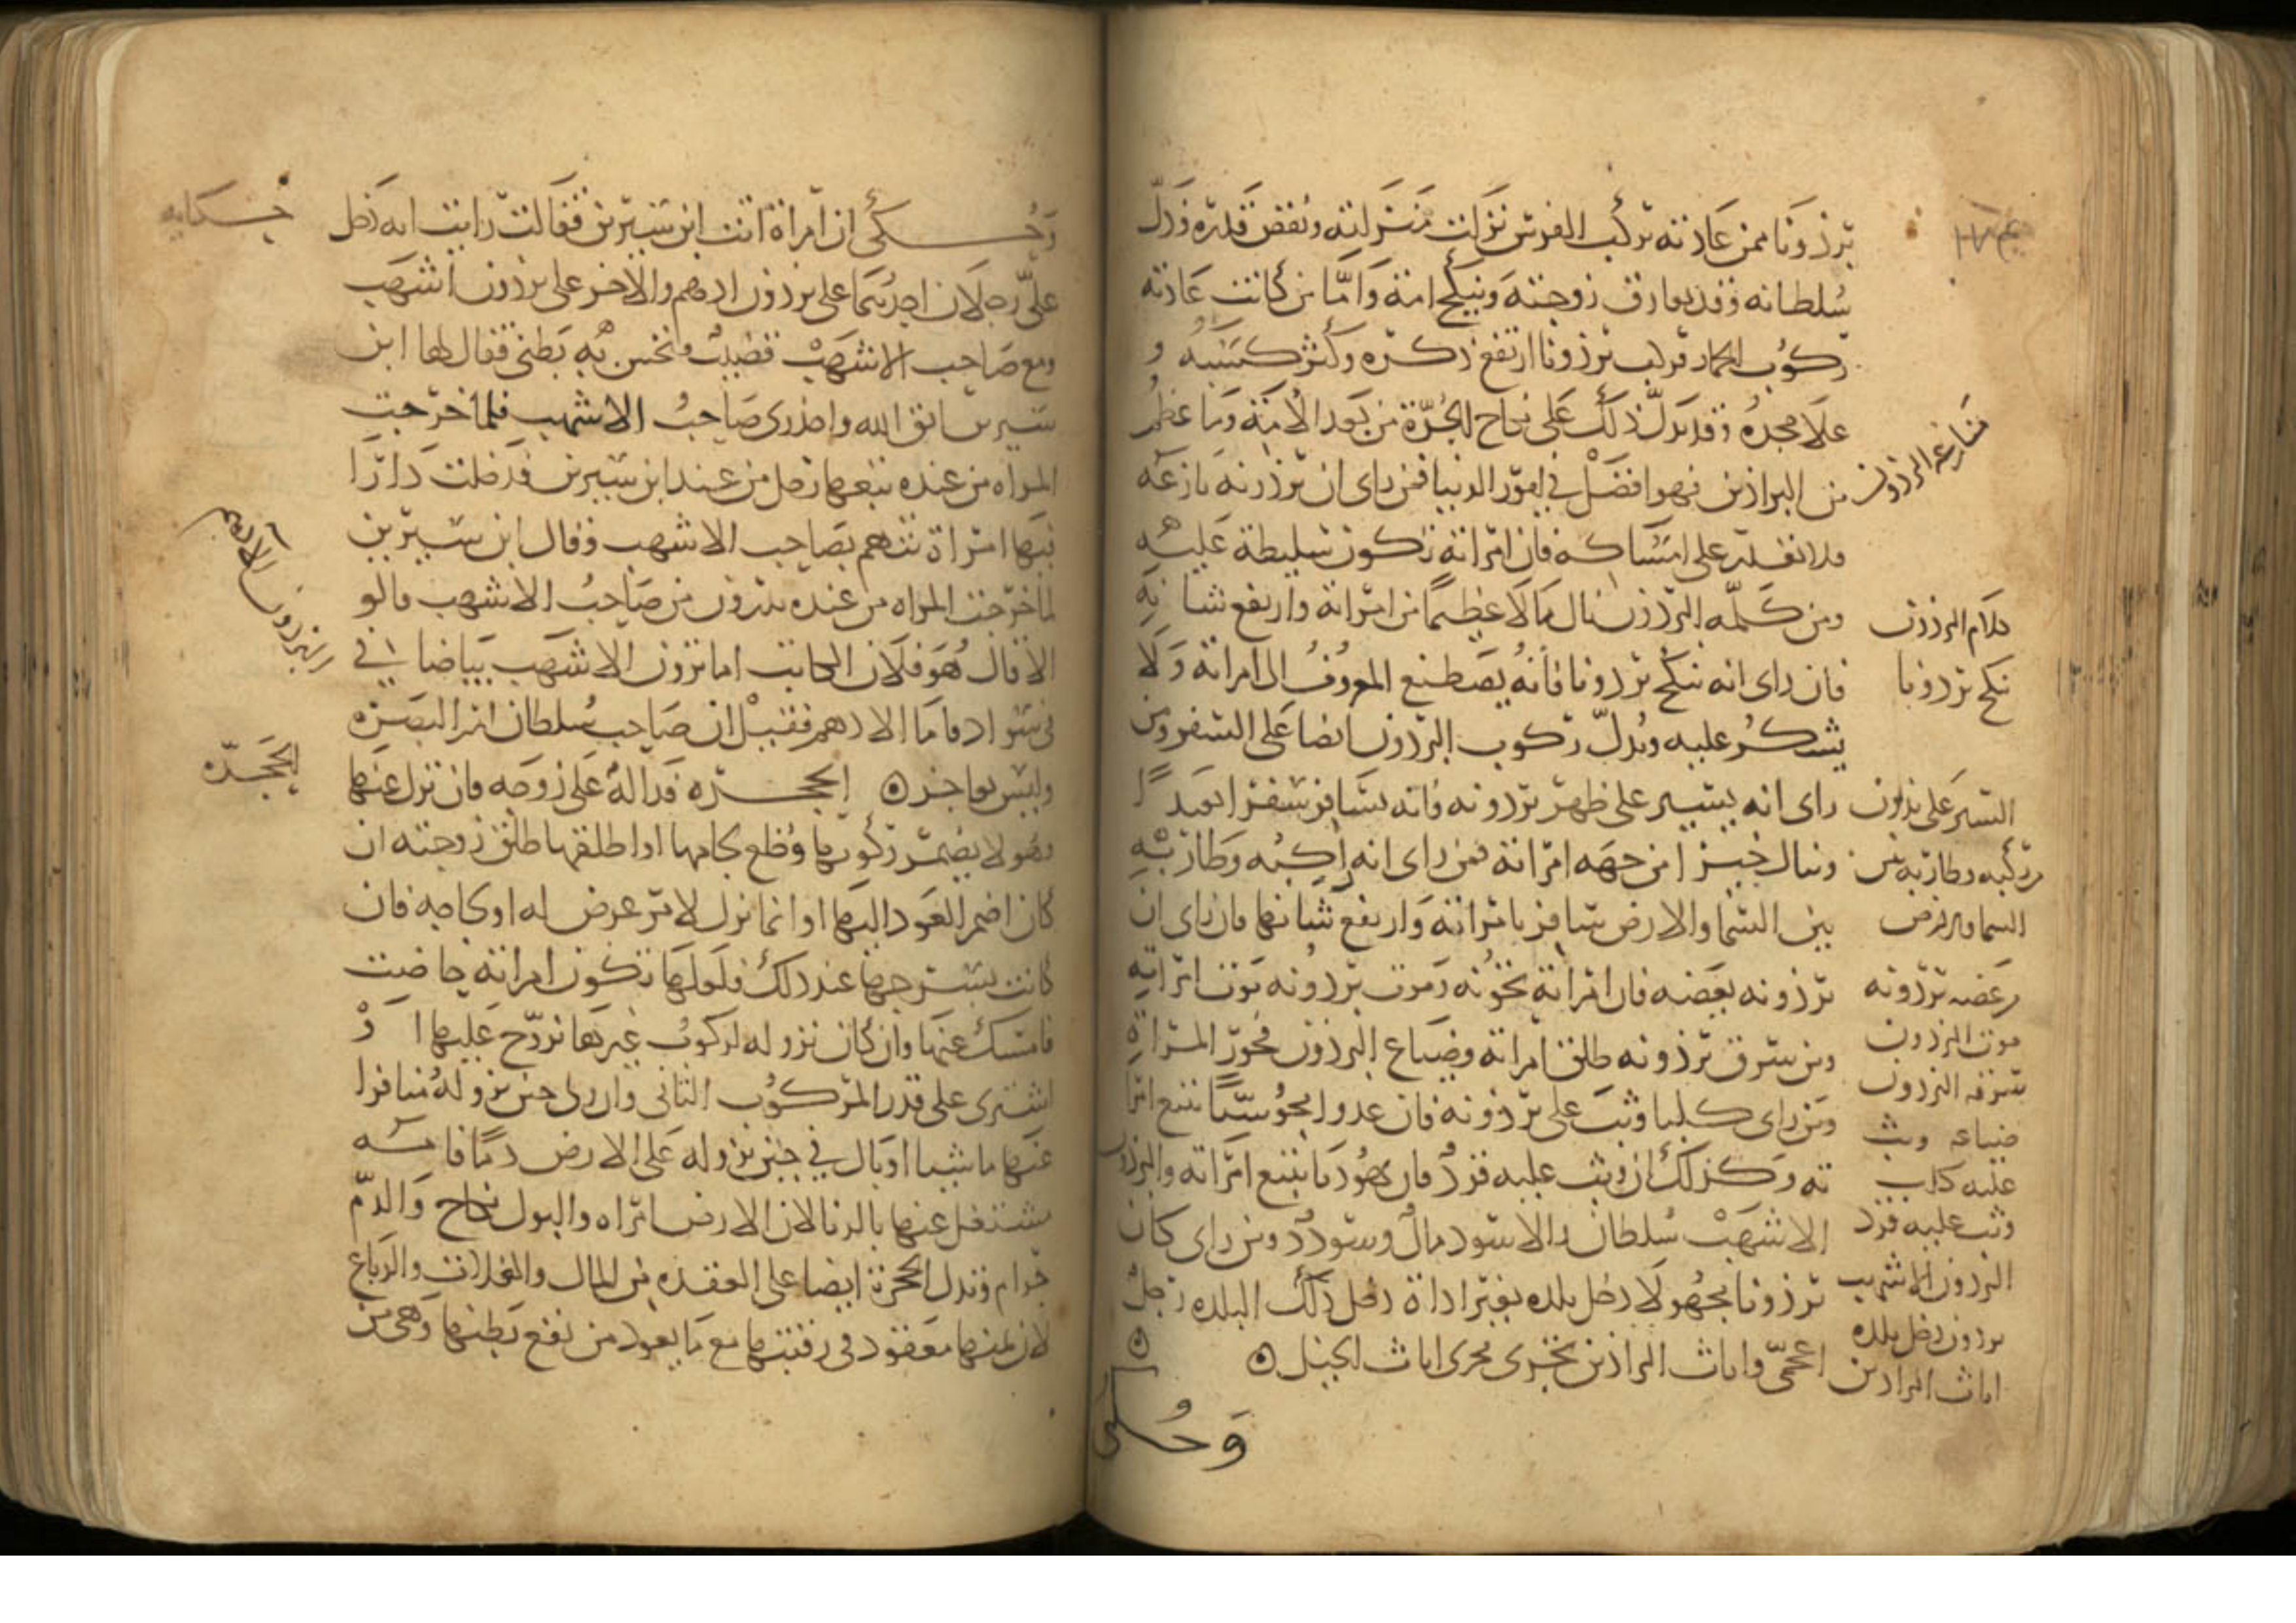 برذونا ممن عادته تركب الفرس نزلت منزلته ونقص قدره وذل
سلطانه وقد يفارق زوجته وينكح امة واما من كانت عادته
ركوب الحمار فركب برذونا ارتفع ذكره وكثر كسبه و
علا مجده وقد يدل ذلك على نكاح الحرة من بعد الامة وما عظم
منازعه البرذون
من البراذين فهو افضل في امور الدنيا فمن راى ان برذونه نازعه
فلا يقدر على امساكه فان امراته تكون سليطة عليه
كلام البرذون
ومن كلمه البرذون نال مالا عظيما من امراته وارتفع شانه
نكح برذونا
فان راى انه نكح برذونا فانه يصطنع المعروف الى امراته ولا
يشكر عليه ويدل ركوب البرذون ايضا على السفر ومن
السير على برذون
راى انه يسير على ظهر برذونه فانه يسافر سفرا بعيدا
ركبه وطار به بين
وينال خيرا من جهه امراته فمن راى انه راكبه وطار به
السما والارض
بين السما والارض سافر بامراته وارتفع شانها فان راى ان
عضه برذونه
برذونه يعضه فان امراته تخونه وموت برذونه موت امراته
موت البرذون
ومن سرق برذونه طلق امراته وضياع البرذون فجور المراة
سرقه البرذون
ومن راى كلبا وثب على برذونه فان عدوا مجوسيا يتبع امرا
ضياعه وثب
عليه كلب
ته وكذلك ان وثب عليه قرد فان يهوديا يتبع امراته والبرذون
وثب عليه قرد
الاشهب سلطان والاسود مال وسودد ومن راى كان
البرذون الاشهب
برذونا مجهولا دخل بلده بغير اداة دخل ذلك البلده رجل
برذون دخل بلده
اناث البراذين
اعجمي واناث البراذين تجرى مجرى اناث الخيل ۞
وحكى
وحكى ان امراة اتت ابن سيرين فقالت رايت انه دخل
حكايه
على رجلان احدهما على برذون ادهم والاخر على برذون اشهب
ومع صاحب الاشهب قضيب فنخس به بطني فقال لها ابن
سيرين اتق الله واحذرى صاحب الاشهب فلما خرجت
المراه من عنده تبعها رجل من عند ابن سيرين فدخلت دارا
فيها امراة تتهم بصاحب الاشهب وقال ابن سيرين
لما خرجت المراه من عنده تدرون من صاحب الاشهب قالو
البرذون الادهم
الا قال هو فلان الكاتب اما ترون الاشهب بياضا في
سواد واما الادهم ففيل ان صاحب سلطان امر البصره
وليس بعاجز ۞ الحجره دالة على زوجه فان نزل عنها
الحجره
وهو لا يضمر ركوبها وخلع لجامها او اطلقها طلق زوجته ان
كان اضمر العود اليها او انما نزل لامر عرض له او لحاجه فان
كانت بسرجها عند ذلك فلعلها تكون امراته حاضت
فامسك عنها وان كان نزوله لركوب غيرها تزوج عليها او
اشترى على قدر المركوب الثاني وان ولى حين نزوله مسافرا
عنها ماشيا او بال في حين نزوله على الارض دما فانه
مشتغل عنها بالزنا لان الارض امراه والبول نكاح والدم
حرام وتدل الحجرة ايضا على العقده من المال والغلات والرباع
لان ثمنها معقود في رقبتها مع ما يعود من نفع بطنها وهى من